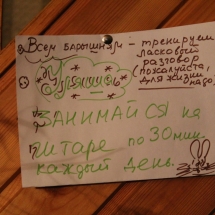 Всем барышням - тренируем
ласковый
разговор
(пожалуйста,
для жизни
надо.)
ЗАНИМАЙСЯ на
гитаре по 30 мин.
каждый день.